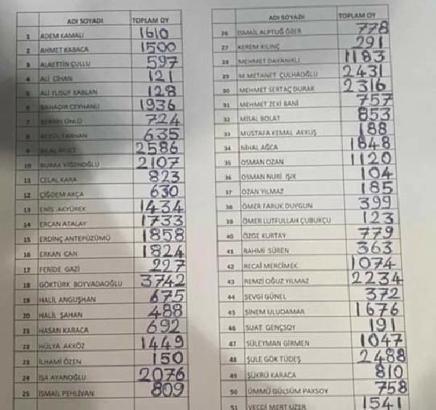 ADI SOYADI TOPLAM OY
1 ADEM KAMALI 1610
2 AHMET KABACA 1500
3 ALAETTİN ÇULLU 597
4 ALİ CİHAN 121
5 ALİ YUSUF KABLAN 128
6 BAHADIR CEYHANLI 1936
7 724
8 635
9 2586
10 2107
11 CELAL KARA 823
12 ÇİĞDEM AKÇA 630
13 ENİS AKYÜREK 1434
14 ERCAN ATALAY 1733
15 ERDİNÇ ANTEPÜZÜMÜ 1858
16 ERKAN CAN 1824
17 FERİDE GAZİ 227
18 GÖKTÜRK BOYVADAOĞLU 3742
19 HALİL ANGUŞHAN 675
20 HALİL ŞAHAN 488
21 HASAN KARACA 692
22 HÜLYA AKKÖZ 1449
23 İLHAMİ ÖZEN 150
24 İSA AYANOĞLU 2076
25 İSMAİL PEHLİVAN 809
ADI SOYADI TOPLAM OY
26 İSMAİL ALPTUĞ ÖZER 778
27 KEREM KILINÇ 291
28 MEHMET DAYANIKLI 1183
29 M.METANET ÇULHAOĞLU 2431
30 MEHMET SERTAÇ DURAK 2316
31 MEHMET ZEKİ BANİ 757
32 MİSAL BOLAT 853
33 MUSTAFA KEMAL AKKUŞ 188
34 NİHAL AĞCA 1848
35 OSMAN OZAN 1120
36 OSMAN NURİ IŞIK 104
37 OZAN YILMAZ 185
38 ÖMER FARUK DUYGUN 399
39 ÖMER LUTFULLAH ÇUBUKÇU 123
40 ÖZGE KURTAY 779
41 RAHMİ SÜREN 363
42 RECAİ MERCİMEK 1074
43 REMZİ OĞUZ YILMAZ 2234
44 SEVGİ GÜNEL 372
45 SİNEM ULUDAMAR 1676
46 SUAT GENÇSOY 191
47 SÜLEYMAN GİRMEN 1047
48 ŞULE GÖKTÜDEŞ 2488
49 ŞÜKRÜ KARACA 810
50 ÜMMÜ GÜLSÜM PAKSOY 758
51 VECDİ MERT UZER 1541